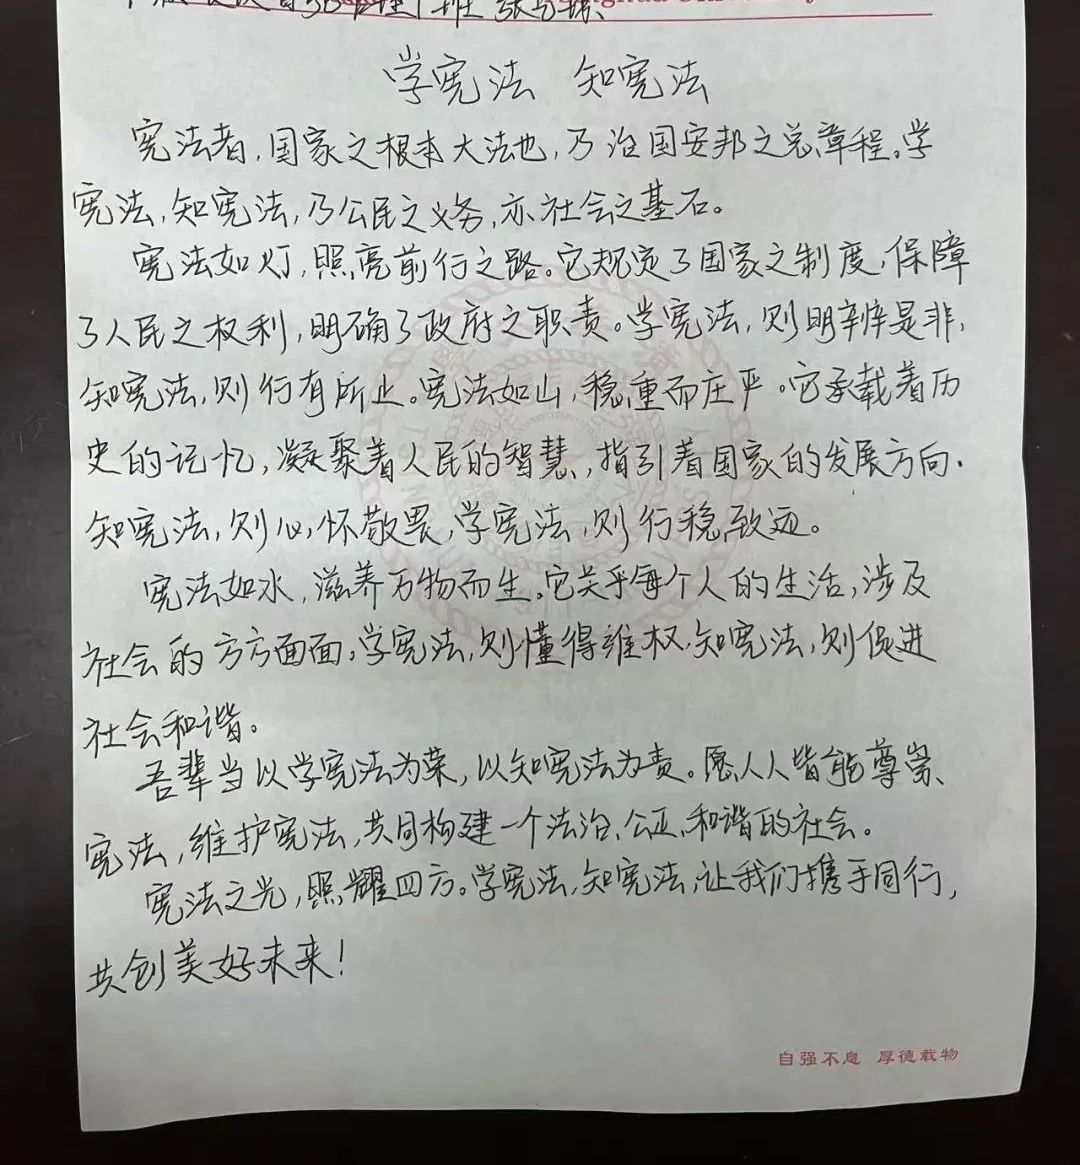 学宪法 知宪法
宪法者,国家之根本大法也,乃治国安邦之总章程。学
宪法,知宪法,乃公民之义务,亦社会之基石。
宪法如灯,照亮前行之路。它规定了国家之制度,保障
了人民之权利,明确了政府之职责。学宪法,则明辨是非,
知宪法,则行有所止。宪法如山,稳重而庄严。它承载着历
史的记忆,凝聚着人民的智慧,指引着国家的发展方向.
知宪法,则心怀敬畏,学宪法,则行稳致远。
宪法如水,滋养万物而生。它关乎每个人的生活,涉及
社会的方方面面,学宪法,则懂得维权,知宪法,则促进
社会和谐。
吾辈当以学宪法为荣,以知宪法为责。愿人人皆能尊崇
宪法,维护宪法,共同构建一个法治、公正、和谐的社会。
宪法之光,照耀四方。学宪法,知宪法,让我们携手同行,
共创美好未来!
自强不息 厚德载物